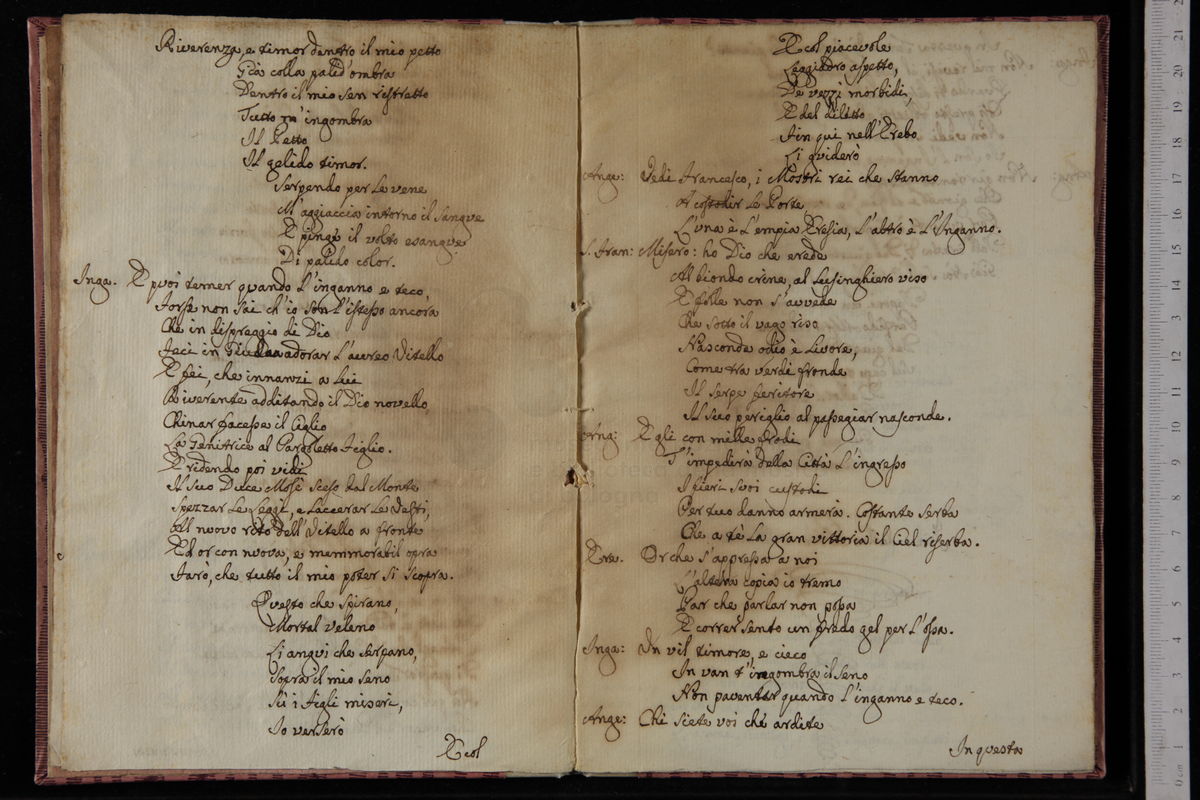 Riverenza, e timor dentro il mio petto
Già colla palid'ombra
Dentro il mio sen ristretto
Tutto m'ingombra
Il Petto
Il gelido timor.
Serpendo per le vene
M'aggiaccia intorno il sangue
E pinge il volto esangue
Di palido color.
Inga. E puoi temer quando l'inganno e teco,
Forse non sai ch'io son l'istesso ancora
Che in dispreggio di Dio
Feci in Giudea adorar l'aureo Vitello
E fei, che innanzi a lui
Riverente additando il Dio novello
Chinar facesse il Ciglio
La Genitrice al Pargoletto Figlio.
E ridendo poi vidi
Il suo Duce Mosè sceso dal Monte
Spezzar le Leggi, e lacerar le Vesti,
Al nuovo rito dell'Vitello a fronte
Ed or con nuova, e memmorabil opra
Farò, che tutto il mio poter si scopra.
Questo che spirano,
Mortal veleno
Li angui che serpano,
Sopra il mio seno
Sù i Figli miseri,
Io verserò
E col
E col piacevole
Leggiadro aspetto,
De vezzi morbidi,
E del diletto
Fin qui nell'Erebo
Li guiderò
Ange: Vedi Francesco, i Mostri rei che stanno
A custodir le Porte,
L'una è l'empia Eresia, l'altro è l'Inganno.
S. Fran: Misero: ho Dio che crede
Al biondo crine, al lusinghiero viso
E folle non s'avvede
Che sotto il vago riso
Nasconde odio è livore,
Come tra verdi fronde
Il serpe feritore
Al suo periglio al passegiar nasconde.
Ang: Egli con mille frodi
T'impedirà della Città l'ingresso
I fieri suoi custodi
Per tuo danno armerà. Costante serba
Che a tè la gran vittoria il Ciel riserba.
Ere. Or che s'appressa a noi
L'altera copia io tremo
Par che parlar non possa
E correr sento un fredo gel per l'ossa.
Inga: Un vil timore, e cieco
In van t'ingombra il seno
Non paventar quando l'inganno e teco.
Ange: Chi siete voi che ardite
In questa